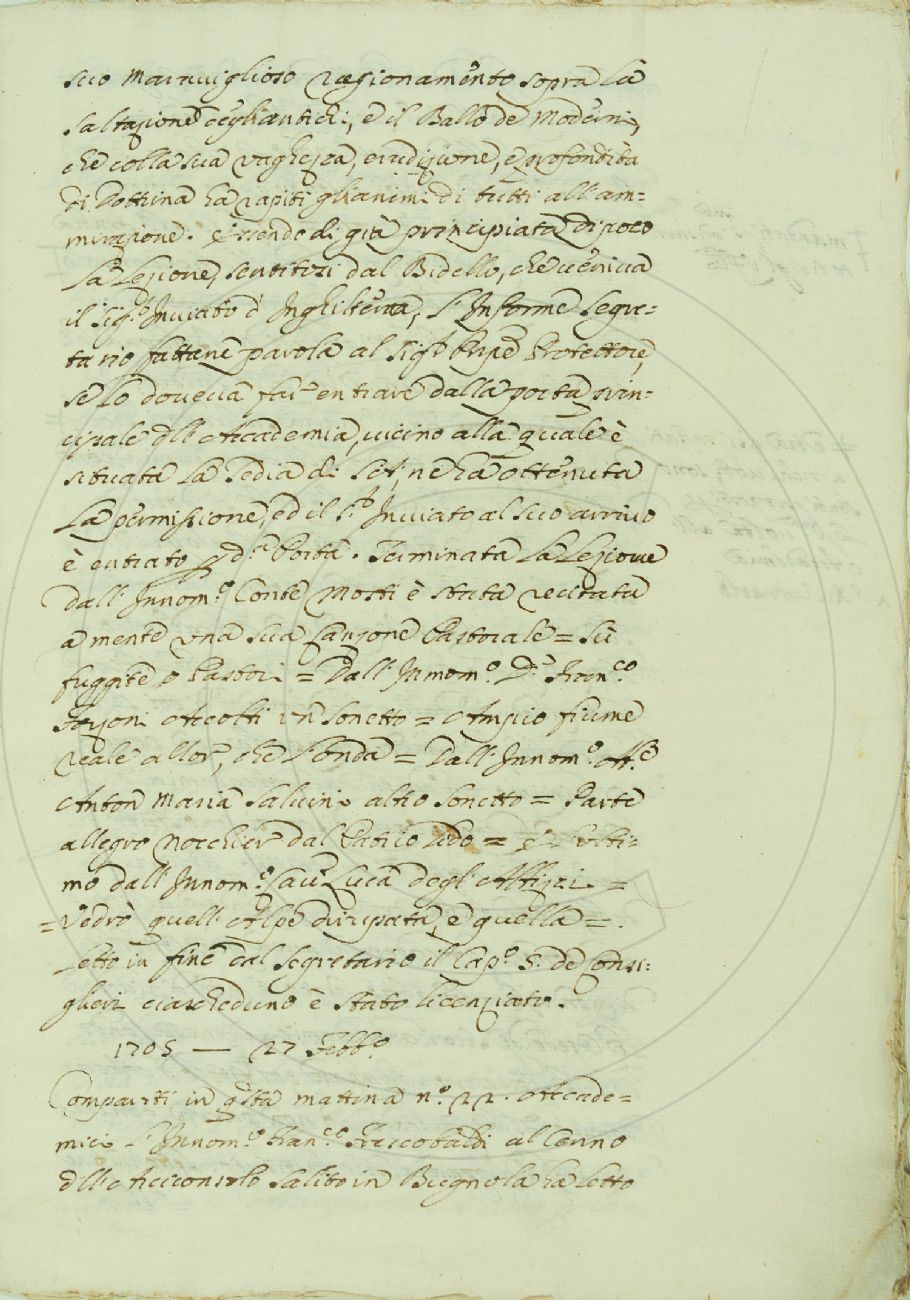 suo maraviglioso ragionamento sopra la
saltazione degl'antichi, e il Ballo de Moderni,
che colla sua vaghezza, erudizione, e profondità
di Dottrina ha rapiti gl'animi di tutti all'am=
mirazione. Essendo di già principiata di poco
la Lezione, sentitosi dal Bidello, che veniva
il Sig.r Inviato d'Inghilterra, l'Informe Segre=
tario fattane parola al Sig.r Prpe Protettore,
se lo doveva far entrare dalla porta prin=
cipale dll'Accademia, vicino alla quale è
situata la Sedia di S.A., ne ha ottenuta
la permissione, ed il S.r Inviato al suo arrivo
è entrato p d.a Porta. Terminata la Lezione
dall'Innom.o Conte Mosti è stata recitata
a mente una sua Canzone Pastorale = Sù
fuggite o Pastori = Dall'Innom.o D.r Fran.co
Forzoni Accolti un Sonetto = Ampio fiume
reale allor, che l'onda = Dall'Innom.o
Anton Maria Salvini altro Sonetto = Parte
allegro Nocchier dal Patrio lido = E l'ulti=
mo dall'Innom.o Cav. Luca degl'Albizi =
= Vedrò quell'Alpe dirupata, e quella =.
Letto in fine dal Segretario il Cap.o 5. de Consi=
glieri ciascheduno è stato licenziato.
1705 — 27 Febb.o
Comparsi in qsta mattina n.o 22. Accade=
mici l'Innom.o Fran.co Frescobaldi al Cenno
dll'Arciconsolo salito in Bugnola ha letto